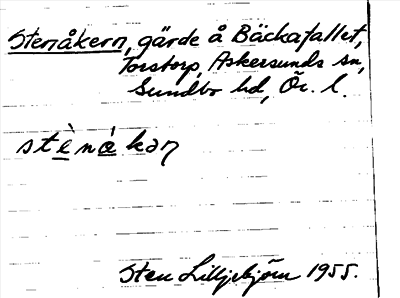 Stenåkern, gärde å Bäckafallet,
Torstorp, Askersunds sn,
Sundbo hd, Ör. l.
stènákən
Sten Lilljebjörn 1955.